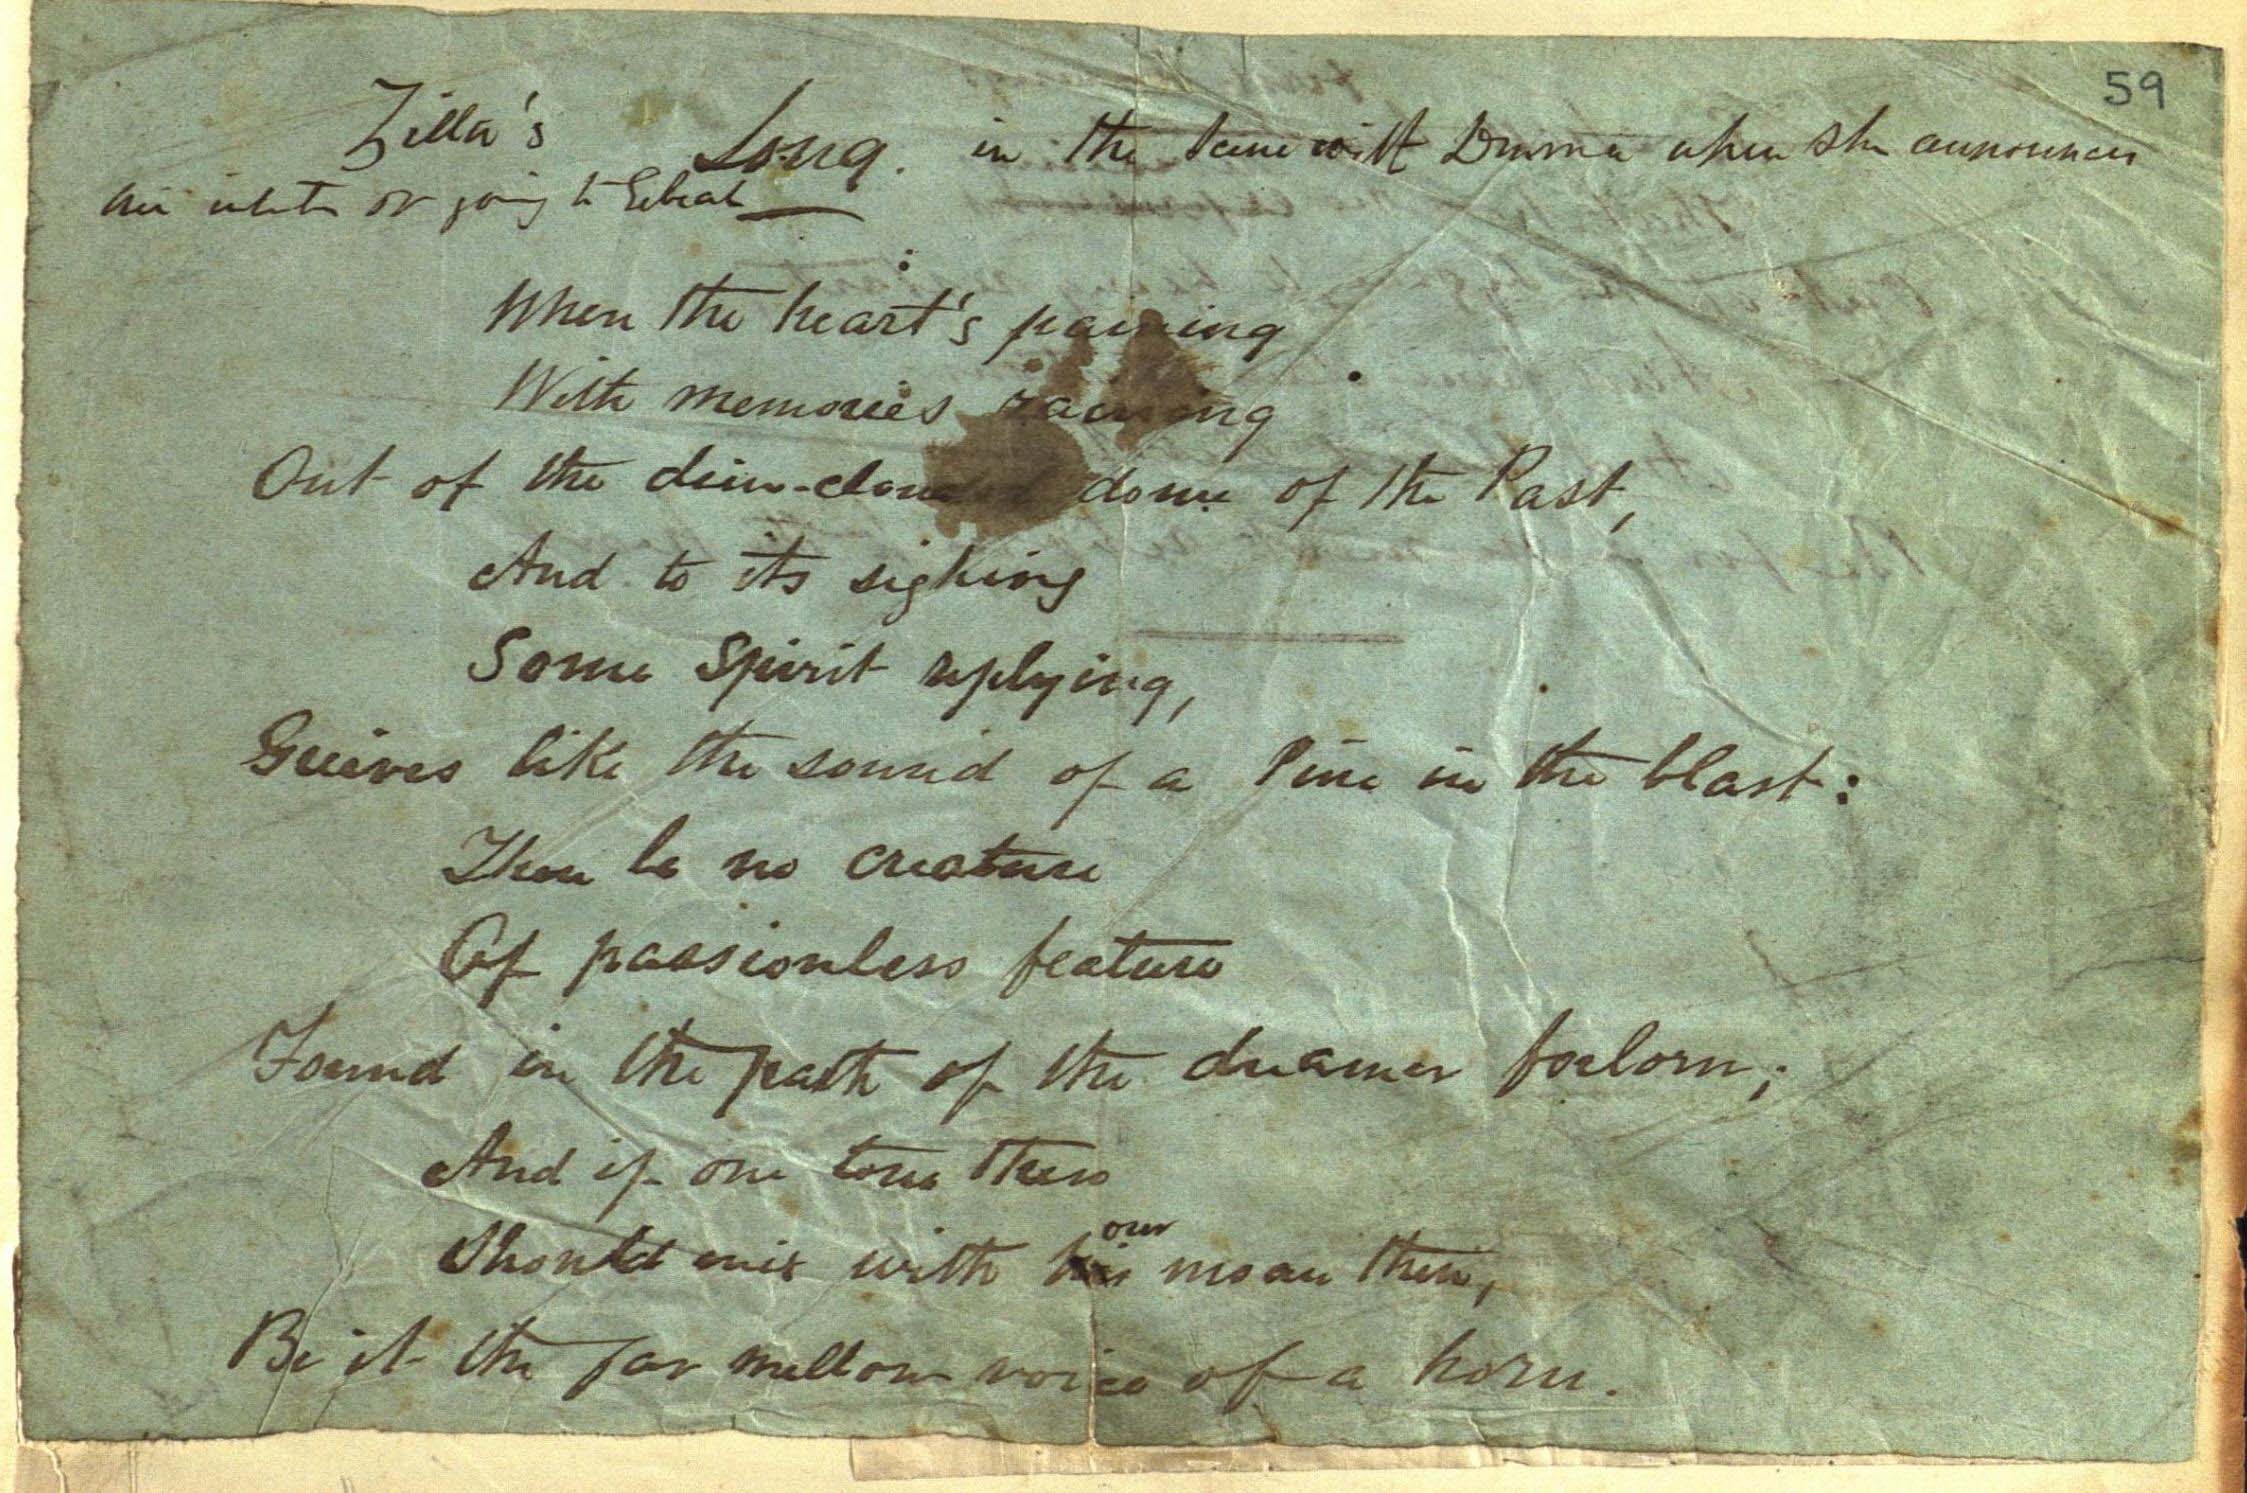 59
Zilla's Song. in the Scene with Drama when she announces
her intention of going to
When the heart's paining
With memories raining
Out of the dim-clouded dome of the Past,
And to its sighing
Some Spirit replying,
Grieves like the sound of a Pine in the blast:
Then be no creature
Of passionless feature
Found in the path of the dreamer forlorn;
And if one tone then
Should mix with his our moan then,
Be it the far mellow voice of a horn.